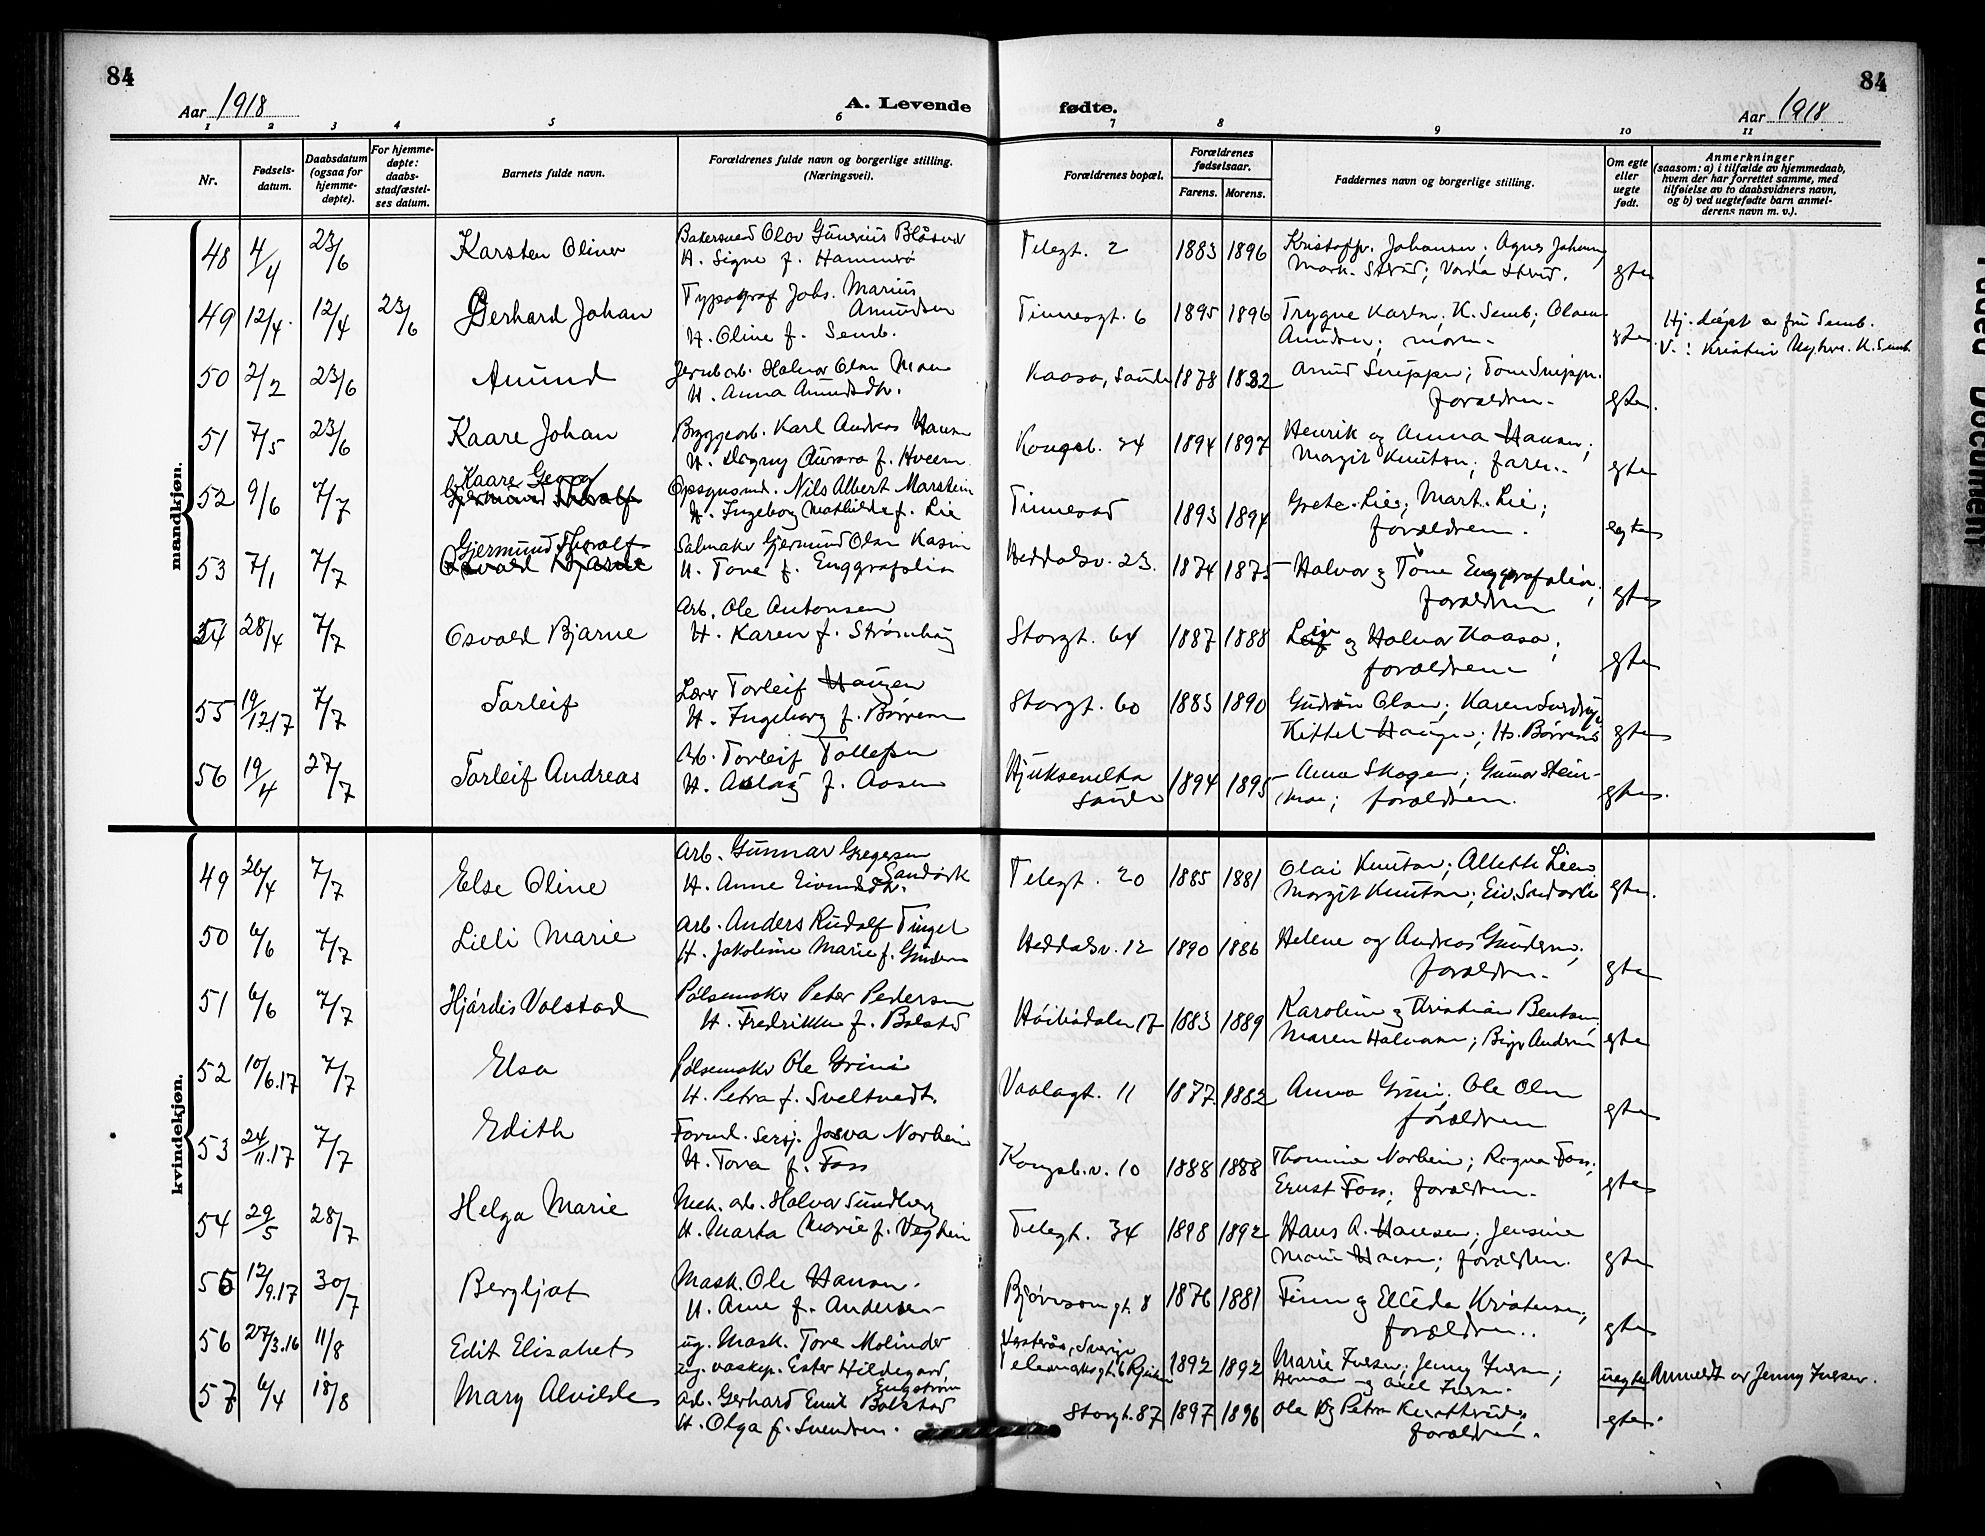 84
84
Aar 1918
A. Levende
fødte.
Aar 1918
1 2 3 4 5 6 7 8 9 10 11
Nr.
Fødsels-
datum.
Daabsdatum
(ogsaa for
hjemme-
døpte).
For hjemme-
døpte:
daabs-
stadfæstel-
ses datum.
Barnets fulde navn.
Forældrenes fulde navn og borgerlige stilling.
(Næringsvei).
Forældrenes bopæl.
Forældrenes
fødselsaar.
Farens. Morens.
Faddernes navn og borgerlige stilling.
Om egte
eller
uegte
født.
Anmerkninger
(saasom: a) i tilfælde av hjemmedaab,
hvem der har forrettet samme, med
tilføielse av to daabsvidners navn,
og b) ved uegtefødte barn anmel-
derens navn m. v.).
mandkjøn.
48 4/4 23/6 Karsten Oliver
Olov
H. Signe f. Hammerø
Telegt. 2 1883 1896
Johansen; Agnes
egte
49 12/4 12/4 23/6 Gerhard Johan
Typograf Johs. Marius
Amundsen
H. Oline f. Semb.
Tinnesgt. 6 1895 1896
Trygve Karlsn; K. Semb;
moren
egte
Hj. døpt av fru Semb.
50 2/2 23/6 Amund
Jernarb. Halvor Olsen Moen
H. Anna Amundsdtr.
Kaasa, Saude 1878 1882
forældren.
egte.
51 7/5 23/6 Kaare Johan
Bryggearb. Karl Andreas Hansen
H. Dagny Aurora f. Hveem
Kongsb. 24 1894 1897
Henrik og Anna Hansen;
Margit Knutsen; faren.
egte
52 9/6 7/7 Kaare Georg
Gjermund Thoralf
Opsynsmd. Nils Albert Marstein
H. Ingeborg Mathilde f. Lie
Tinnesad 1893 1894
Grete Lie; Mart. Lie;
forældren.
egte
53 7/1 7/7 Gjermund Thoralf
Osvald Bjarne
Salmaker Gjermund Olsen Kasin
H. Tone f. Enggrafslia
Heddalsv. 23. 1874 1875
Halvor og Tone Enggrafslia;
forældren
egte
54 28/4 7/7 Osvald Bjarne
Arb. Ole Antonsen
H. Karen f. Strømhaug
Storgt. 64 1887 1888
og Halvor Kaasa;
forældrene
egte
55 19/12.17 7/7 Torleif
Lærer Torleif Haugen
H. Ingeborg f. Børresen
Storgt. 60 1883 1890
Gudrun Olsen; Karen
Kittel Haugen; Hs. Børresen
egte
56 19/4 27/7 Torleif Andreas
Arb. Torleif Tollefsen
H. Aslaug f. Aasen
Hjuksevelta
Saude
1894 1895
Anna Skogen; Gunnar Stein-
moe; forældren.
egte.
kvindekjøn.
49 26/4 7/7 Else Oline
Arb. Gunnar Gregersen
Sandørk
H. Anne Eivindsdtr.
Telegt. 20 1885 1881
Olai Knutsen; Alette Lien
Margit Knutsen; Eiv.
egte.
50 6/6 7/7 Lilli Marie
Arb. Anders Rudolf Tingel
H. Jakobine Marie f. Gundersen
Heddalsv. 12 1890 1886
Helene og Andreas Gundersen;
forældren.
egte
51 6/6 7/7 Hjørdis Volstad
Pølsemaker Peter Pedersen
H. Fredrikke f. Bolstad
Høibødalen 17 1883 1889
Karoline og Kristian Bentsen
Maren Halvorsen; Birger Andersen
egte
52 10/6.17 7/7 Elsa
Pølsemaker Ole Grini
H. Petra f. Sveltvedt.
Vaalagt. 11 1877 1882
Anna Grini; Ole Olsen
forældren
egte
53 24/11.17 7/7 Edith
Forval. Sersj. Josva Norheim
H. Tora f. Foss
Kongsb.v. 10 1888 1888
Thomine Norheim; Ragna Foss;
Ernst Foss; forældren.
egte
54 29/5 28/7 Helga Marie
Mek. arb. Halvor Sundberg
H. Marta Marie f. Vegheim
Telegt. 34 1898 1892
Hans A. Hansen; Jensine
Marie Hansen; forældren.
egte
55 12/9.17 30/7 Bergljot
Mask. Ole Hansen.
H. Anne f. Andersen
Bjørnsons gt. 8 1876 1881
Finn og Elida Kristensen;
forældren.
egte
56 27/3.16 11/8 Edit Elisabet
ug. Mask. Tore Molinder
ug. vaskep. Ester Hildegard
Engstrøm
Vesterås, Sverige
Telemarksgt. 6 Rjukan 1892 1892
Marie Iversen; Jenny Iversen;
Herman og Iversen.
uegte
Anmeldt av Jenny Iversen.
57 6/4 18/8 Mary Alvilde
Arb. Gerhard Emil Bolstad
H. Olga f. Svendsen.
Storgt. 87 1897 1896
Ole og Petra
forældren.
egte.